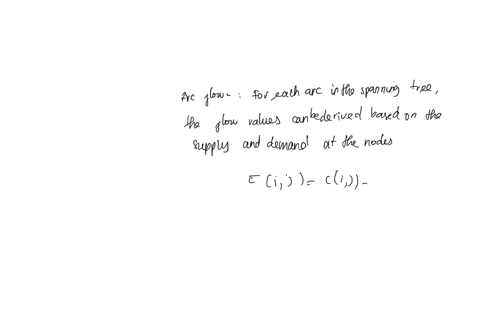 Arc flow- : for each arc in the spanning tree,
the flow values can be derived based on the
supply and demand at the nodes
c̄ (i,j) = c(i,j) -